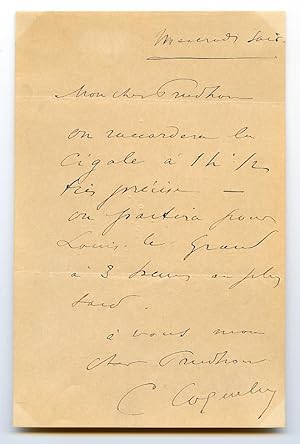 Mercredi soir.
Mon cher Prudhon
on raccordera la
Cigale à 1h 1/2
très précise —
on partira pour
Louis-le-Grand
à 3 heures au plus
tard.
à vous mon
cher Prudhon
C Coquelin